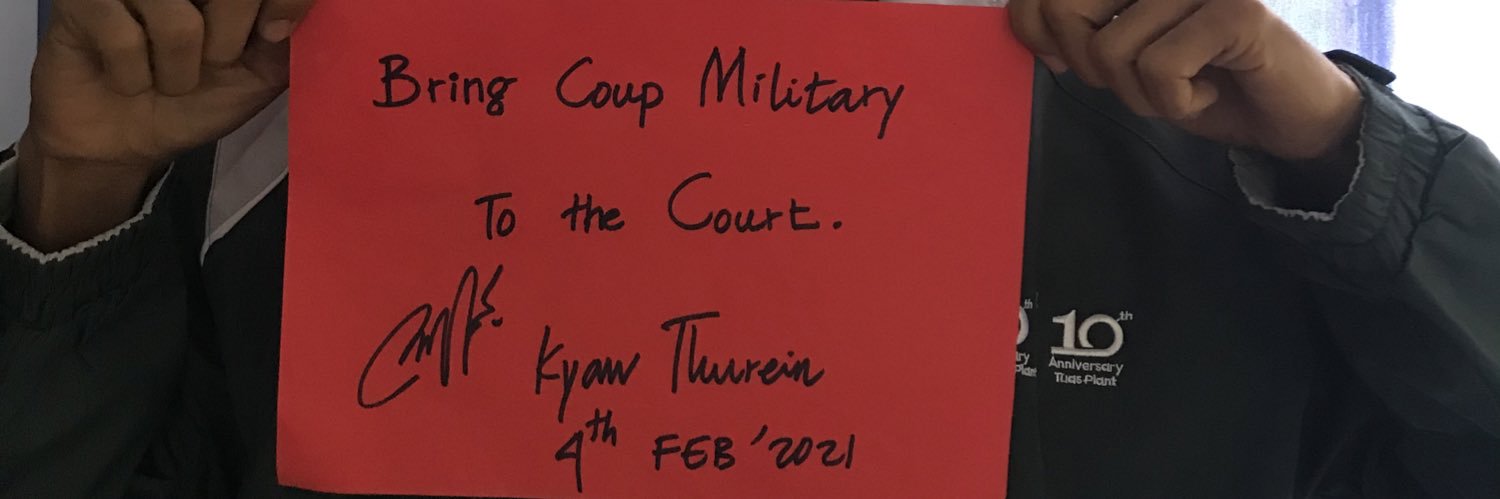 Bring Coup Military
To the Court.
Kyaw Thurein
4th FEB '2021
10th
Anniversary
Tuas Plant